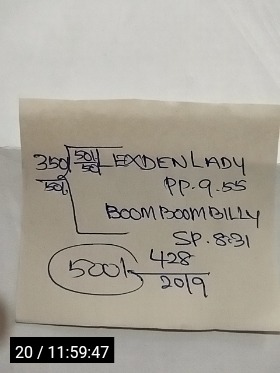 350 50/ 50 LEXDEN LADY
50/. PP. 9.55
BOOM BOOM BILLY
SP. 8:31
500/- 428
2019
20 / 11:59:47